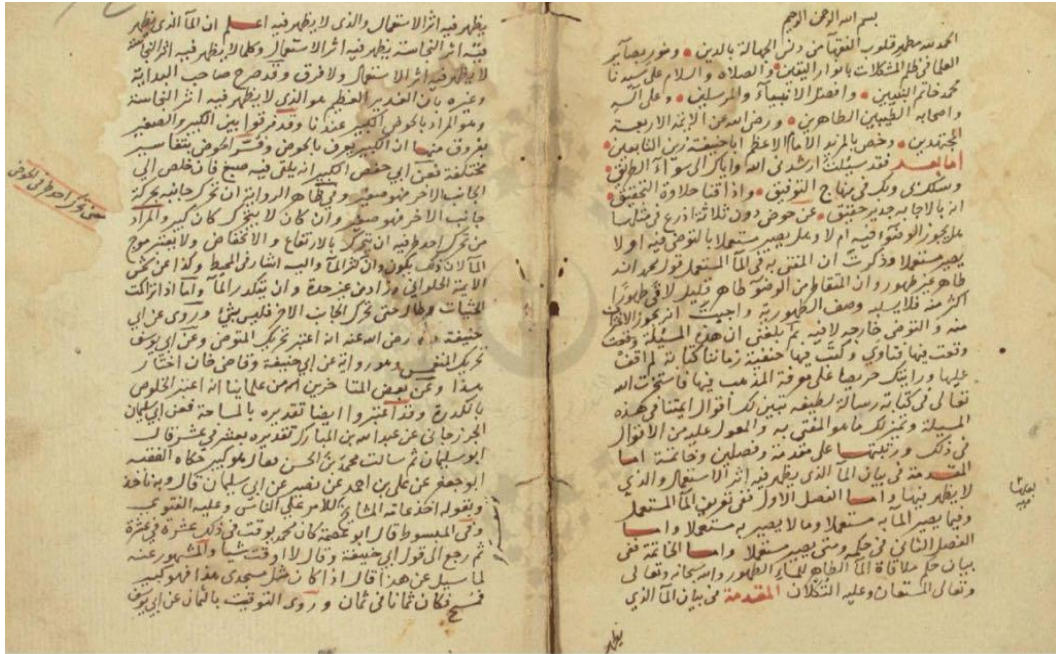 بسم الله الرحمن الرحيم
الحمد لله مطهر قلوب الفقهآ من دنس الجهالة بالدين ونور بصآير
العلما فى ظلم المشكلات بانوار اليقين والصلاه والسلام على سيدنا
محمد خاتم النبيين وافضل الانبيآء والمرسلين وعلى اله
واصحابه الطيبين الطاهرين ورضى الله عن الايمة الاربعة
المجتهدين وخص بالمزيد الامام الاعظم ابا حنيفة زين التابعين
اما بعد فقد سئلت ارشدنى الله واياك الى سوآء الطريق
وسلك بى وبك فى منهاج التوفيق واذاقنا حلاوة التحقيق
انه بالاجابه جدير حقيق عن حوض دون ثلاثة اذرع فى مثلها
هل يجوز الوضوء فيه ام لا وهل يصير مستعملا بالتوضى فيه او لا
يصير مستعملا وذكرت ان المفتى به فى المآ المستعمل قول محمد انه
طاهر غير طهور وان المتقاطر من الوضوء طاهر قليل لاقى طهورا
اكثر منه فلا يسلبه وصف الطهورية واجبت انه يجوز الاغتراف
منه والتوضى خارجه لا فيه ثم بلغنى ان هذه المسيلة وقعت
وقعت فيها فتاوى وكتب فيها حنفية زماننا كتابة لم اقف
عليها ورايتك حريصا على معرفة المذهب فيها فاستخرت الله
تعالى فى كتابة رسالة لطيفه تبين لك اقوال ايمتنا فى هذه
المسيلة وتميز لك ما هو المفتى به والمعول عليه من الاقوال
فى ذلك ورتبتها على مقدمة وفصلين وخاتمة اما
المقدمة فى بيان المآ الذى يظهر فيه اثر الاستعمال والذى
لا يظهر فيها واما الفصل الاول ففى تعريف المآ المستعمل
وفيما يصير المآ به مستعملا وما لا يصير به مستعملا واما
الفصل الثانى فى حكمه ومتى يصير مستعملا واما الخاتمة ففى
بيان حكم ملاقاة المآ الطاهر للمآء الطهور والله سبحانه وتعالى
وتعالى المستعان وعليه التكلان المقدمة فى بيان المآ الذى
يظهر
يظهر فيه اثر الاستعمال والذى لا يظهر فيه اعلم ان المآ الذى يظهر
فيه اثر النجاسة يظهر فيه اثر الاستعمال وكلما لا يظهر فيه اثر النجاسة
لا يظهر فيه اثر الاستعمال ولا فرق وقد صرح صاحب الهداية
وغيره بان الغدير العظيم هو الذى لا يظهر فيه اثر النجاسة
وهو المراد بالحوض الكبير عندنا وقد فرقوا بين الكبير والصغير
بفروق منها ان الكبير يعرف بالحوض وفسر الحوض بتفاسير
مختلفة فعن ابى حفص الكبير انه يلقى فيه صبغ فان خلص الى
الجانب الاخر فهو صغير وفى ظاهر الرواية ان تحرك جانبه بحركة
جانب الاخر فهو صغير وان كان لا يتحرك كان كبير والمراد
من تحرك احد طرفيه ان يتحرك بالارتفاع والانخفاض ولا يعتبر موج
المآ لان ذلك يكون وان كثر المآ واليه اشار فى المحيط وكذا عن شمس
الايمة الحلوانى وزاد من عنده وان يتكدر المآ واما اذا تراكمت
وطال حتى تحرك الجانب الاخر فليس بشئ وروى عن ابى
حنيفة رضى الله عنه انه اعتبر تحريك المتوضى وعن ابى يوسف
تحريك المغتسل وهو رواية عن ابى حنيفة وقاضى خان اختار
هذا وعن بعض المتاخرين من علماينا انه اعتبر الخلوص
بالكدرة وقد اعتبروا ايضا تقديره بالمساحة فعن ابى سليمان
الجرزجانى عن عبد الله بن المبارك تقديره بعشر فى عشر قال
ابو سليمان ثم سالت محمد بن الحسن فقال هو كبير حكاه الفقيه
ابو جعفر عن على بن احمد عن نصير عن ابى سليمان قال وبه ناخذ
وبقوله اخذ عامة المشايخ للامر على الناس وعليه الفتوى
وفى المبسوط قال ابو عصمة كان محمد يوقت فى ذلك عشرة فى عشرة
ثم رجع الى قول ابى حنيفة وقال لا اوقت شيا والمشهور عنه
لما سيل عن هذا قال اذا كان مثل مسجدى هذا فهو كبير
فمسح فكان ثمانا فى ثمان وروى التوقيت بالثمان عن ابى يوسف